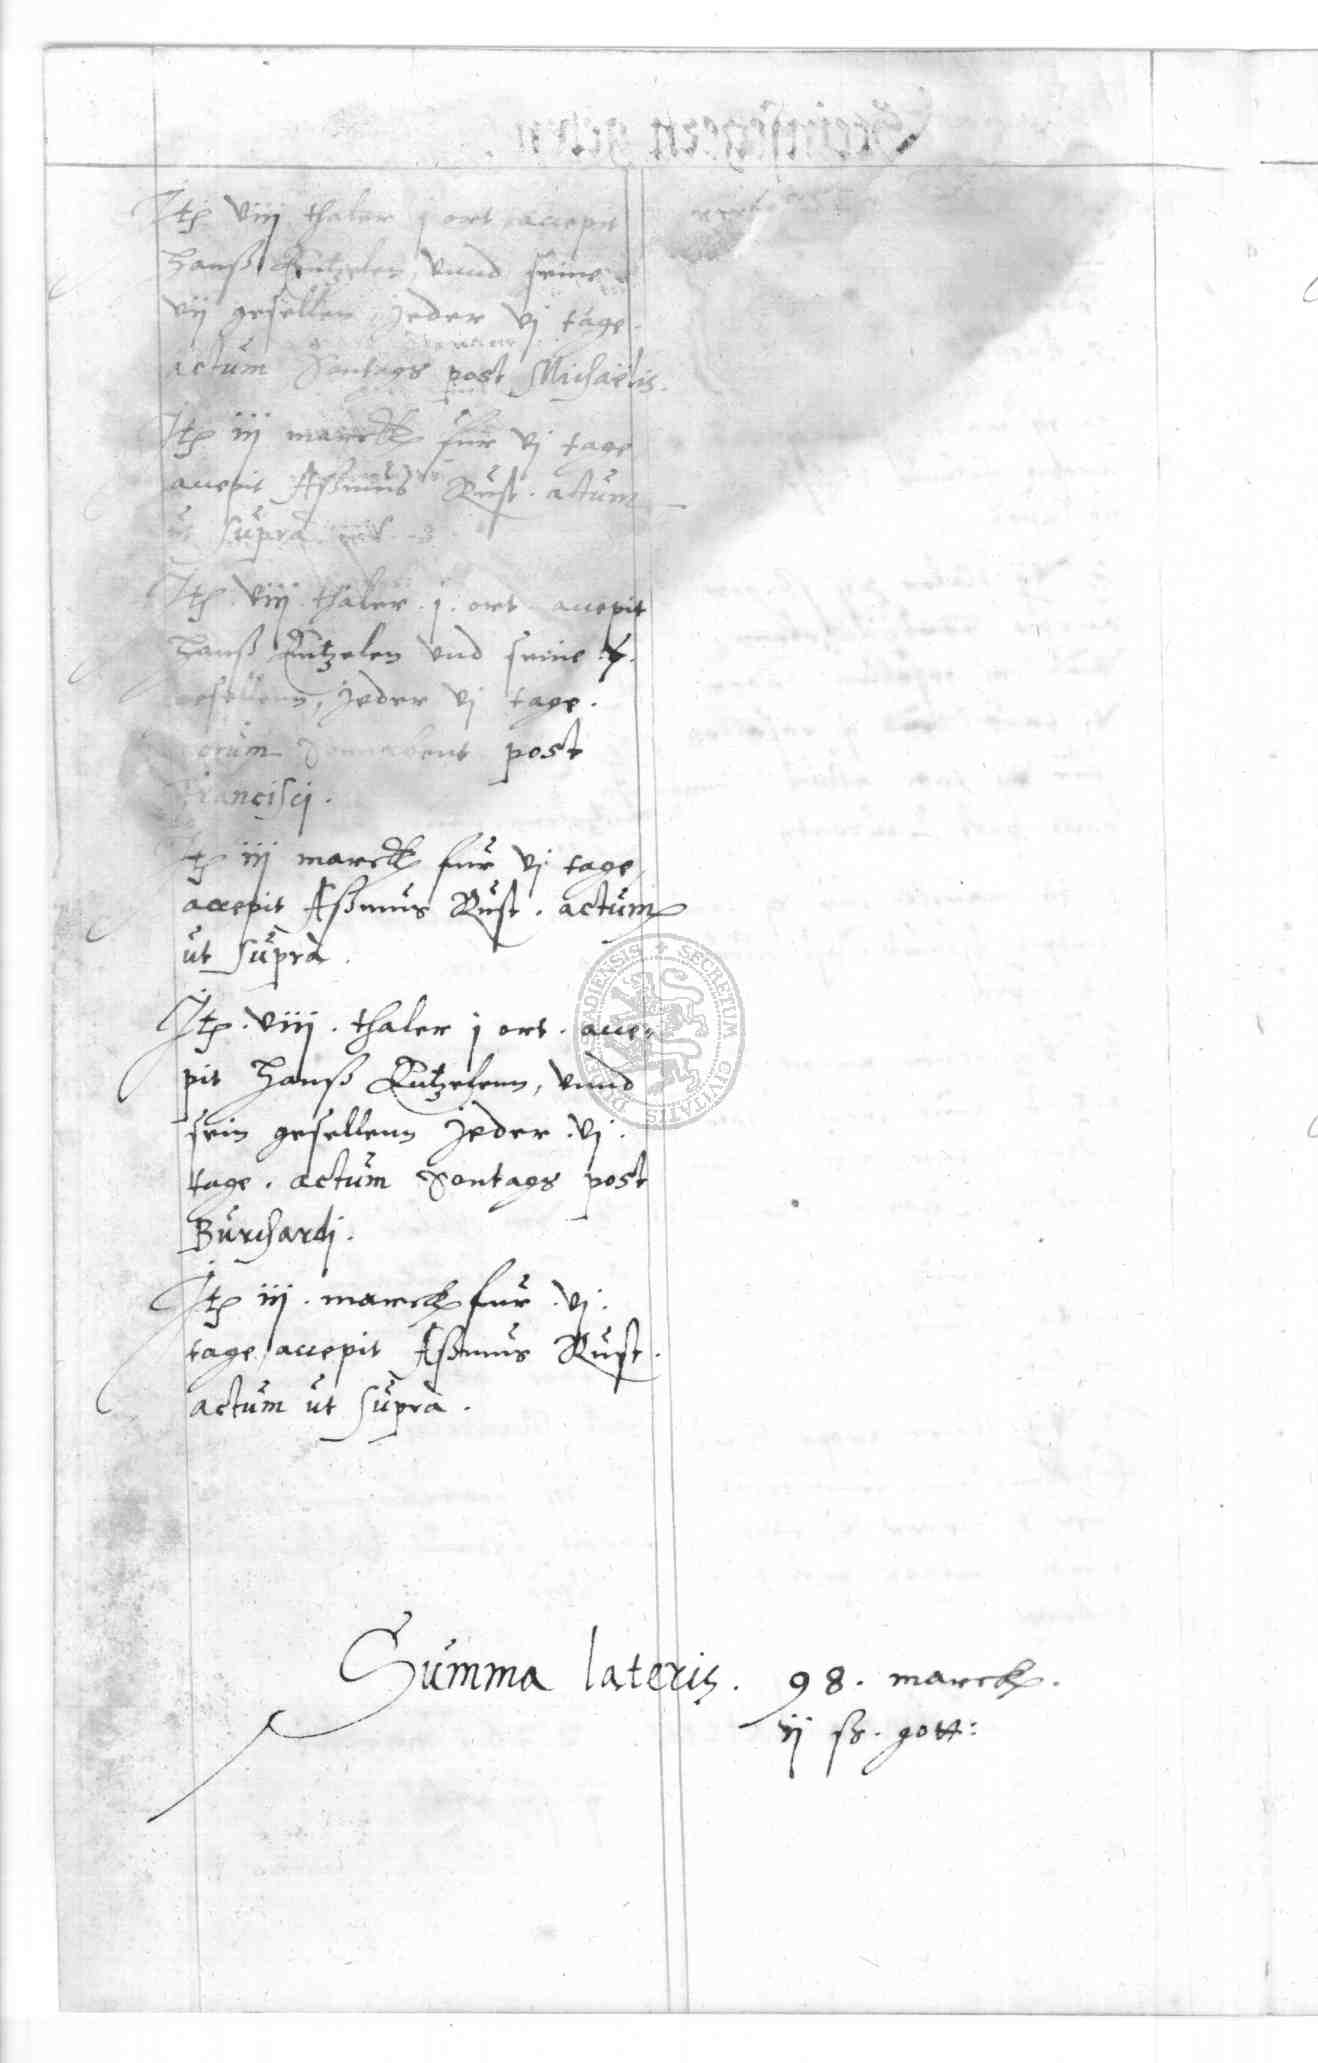 Itē viij thaler j ort accepit
Hanß Kutzelen vnnd seine
vij gesellen, jeder vj tage.
actum Sontags post Michaelis.
Itē iij marck fur vj tage
accepit Aßmus Rust. actum
ut supra
Itē. viij. thaler. j. ort. accepit
Hanß Kutzelen vnd seine
gesellenn, jeder vj tage.
actum Sonnabent post
Francisci.
Itē iij marck fur vj tage
accepit Aßmus Rust. actum
ut supra.
Itē. viij. thaler j ort. acce=
pit Hanß Kutzelenn, vnnd
sein gesellenn jeder. vj.
tage. actum Sontags post
Burchardi.
Itē iij. marck fur. vj.
tage accepit Aßmus Rust.
actum ut supra.
SECRETUM CIVITATIS DUDERSTADIENSIS
Summa lateris. 98. marck.
ij ß. gott: